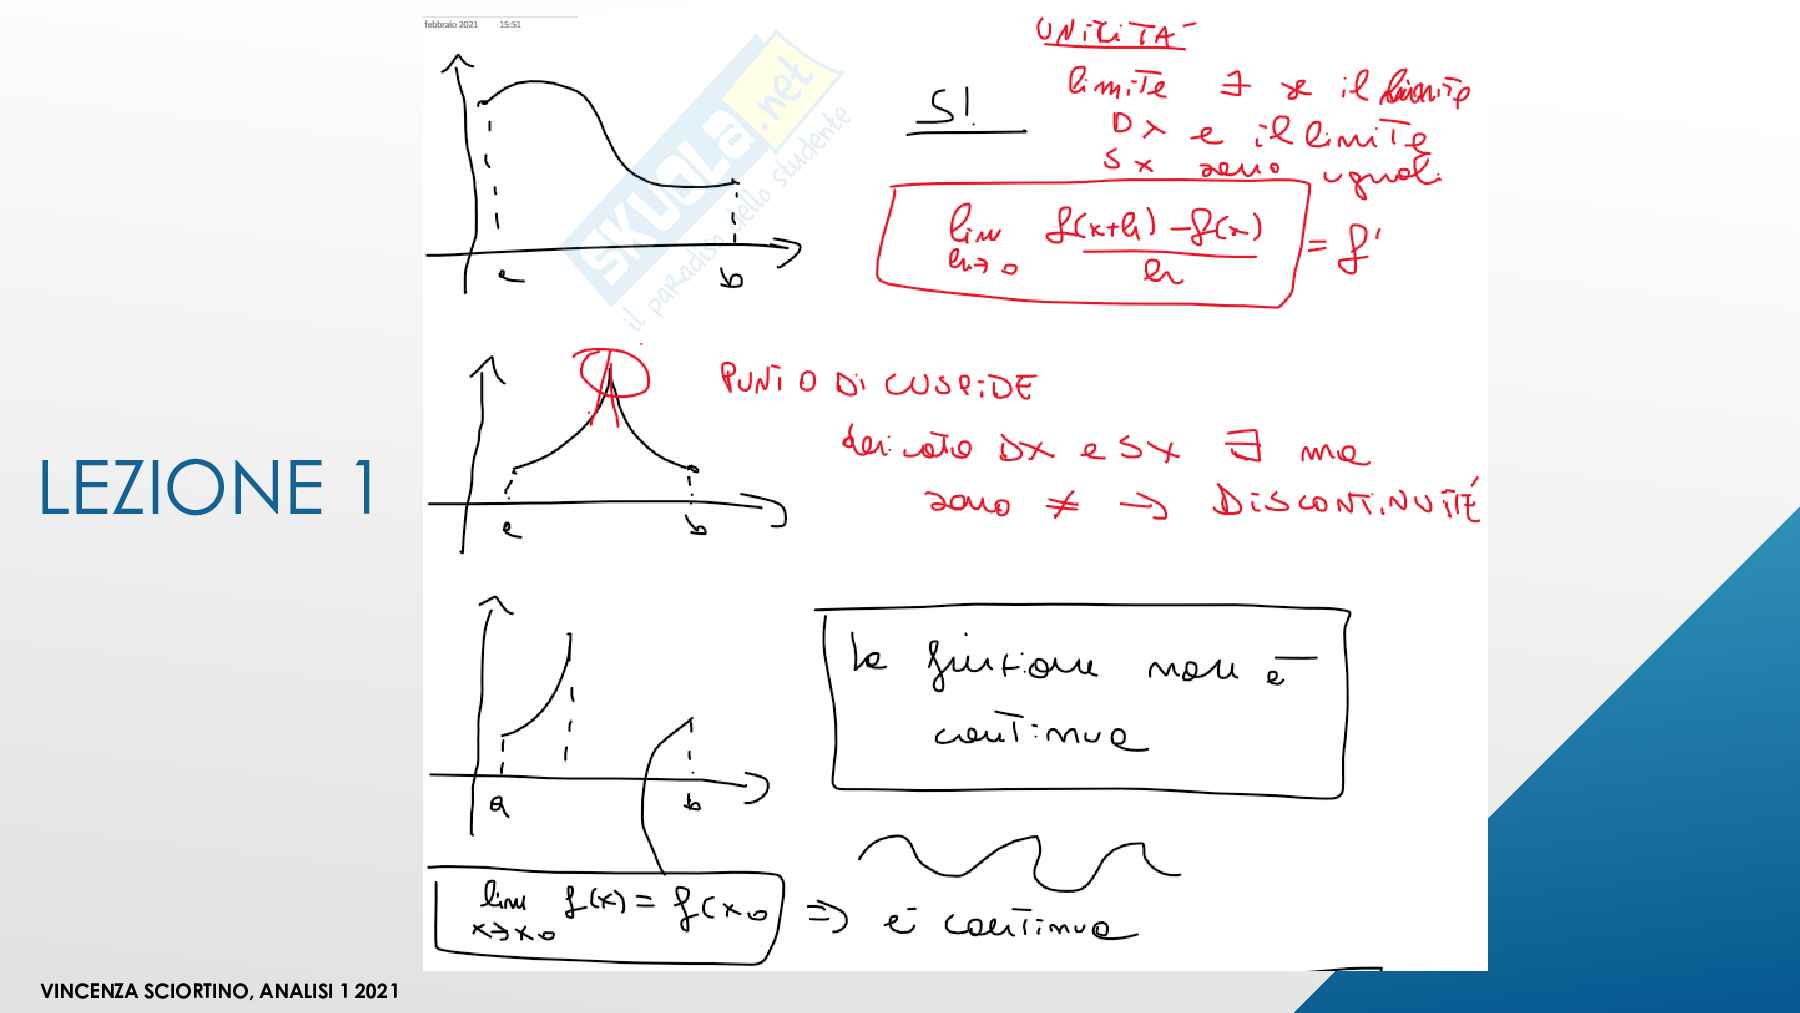 febbraio 2021 15:51
UNICITA'
limite ∃ se il limite
DX e il limite
SX sono uguali
SI
lim h→0 f(x+h) - f(x) / h = f'
SKUOLA.net
il paradiso dello studente
a b
PUNTO DI CUSPIDE
derivata DX e SX ∃ ma
sono ≠ → DISCONTINUITÉ
a b
LEZIONE 1
la funzione non è
continua
a b
lim x→x0 f(x) = f(x0 ⇒ è continua
VINCENZA SCIORTINO, ANALISI 1 2021